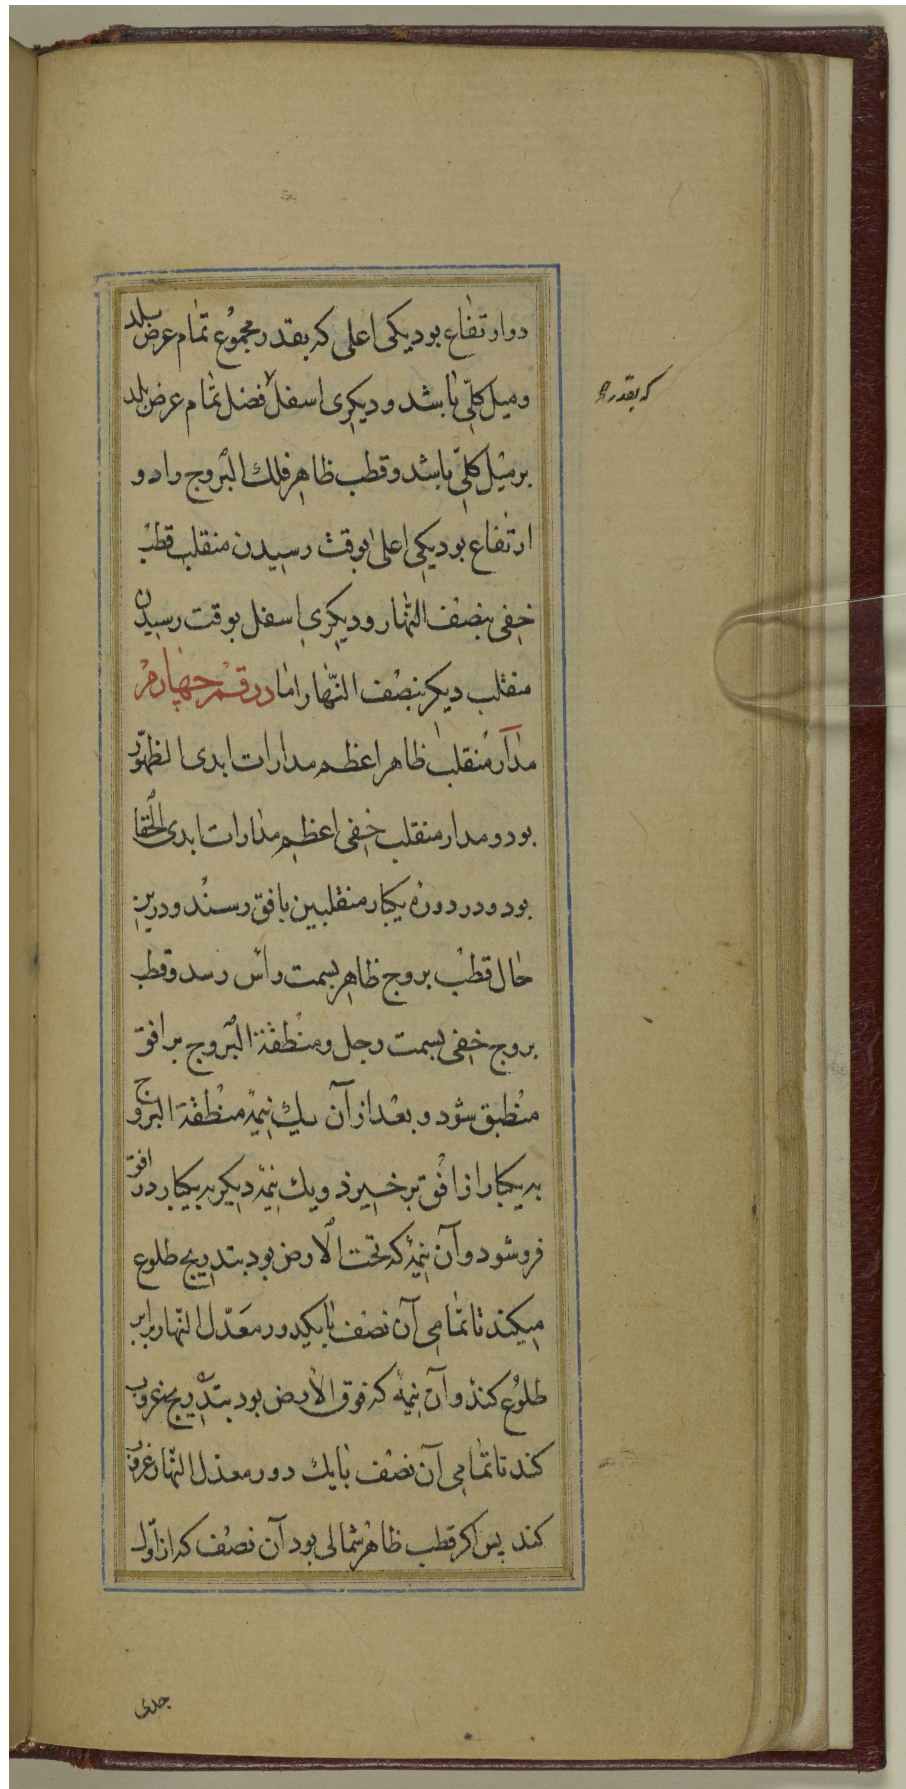 دو ارتفاع بود یکی اعلی که بقدر مجموع تمام عرض بلد
ومیل کلّی باشد و دیکری اسفل فضل تمام عرض بلد
که بقدر
بر میل کلّی باشد و قطب ظاهر فلك البروج را دو
ارتفاع بود یکی اعلی بوقت رسیدن منقلب قطب
خفی بنصف النهار و دیکری اسفل بوقت رسیدن
منقلب دیکر بنصف النّهار امّا در رقم چهارم
مدار منقلب ظاهر اعظم مدارات ابدی الظهور
بود و مدار منقلب خفی اعظم مدارات ابدی الخفا
بود و در دوره یکبار منقلبین بافق رسند و درین
حال قطب بروج ظاهر بسمت رأس رسد و قطب
بروج خفی بسمت رجل و منطقة البروج بر افق
منطبق شود و بعد از آن یك نیمۀ منطقة البروج
بدیکبار از افق برخیزد و یك نیمۀ دیکر بدیکبار در افق
فرو شود و آن نیمۀ که تحت الارض بود بتدریج طلوع
میکند تا تمامی آن نصف با یکدور معدّل النهار برابر
طلوع کند و آن نیمۀ که فوق الارض بود بتدریج غروب
کند تا تمامی آن نصف با یك دور معدل النهار غروب
کند پس اکر قطب ظاهر شمالی بود آن نصف که از اوّل
جدی